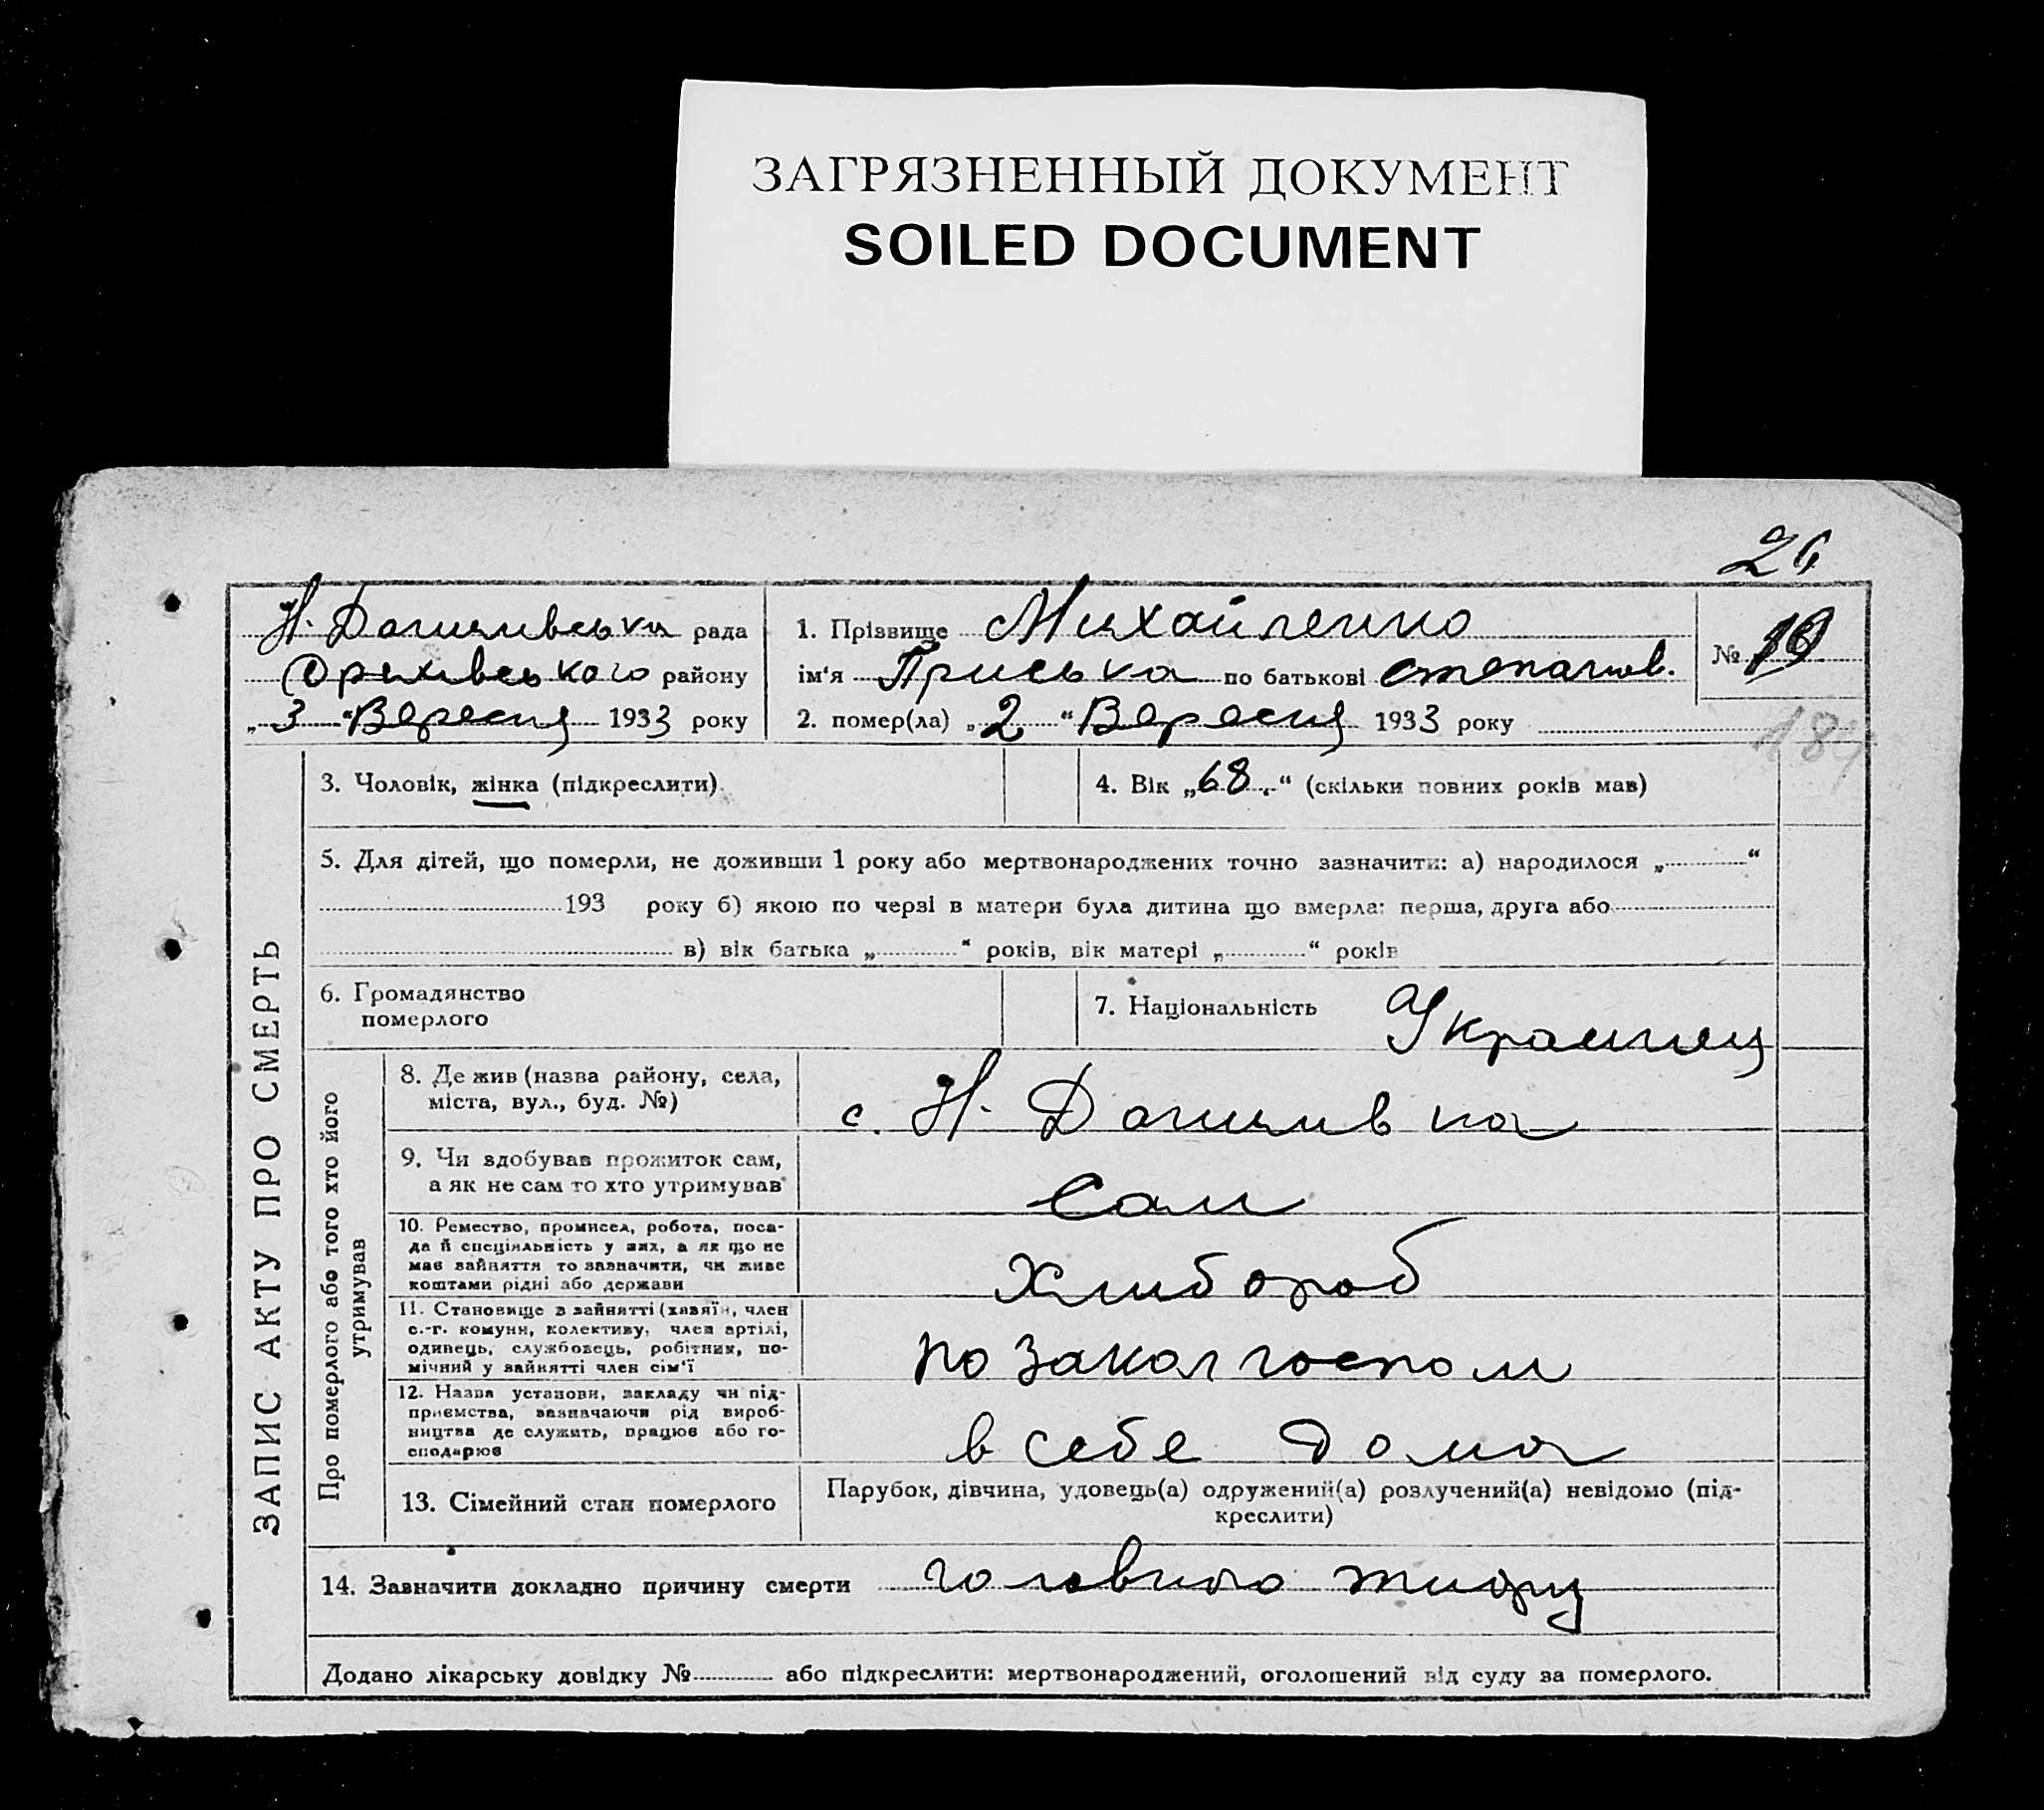 ЗАГРЯЗНЕННЫЙ ДОКУМЕНТ
SOILED DOCUMENT
26
Н. Даниливська рада
Орихівського району
„3“ Вересня 1933 року
1. Прізвище Михайленко
ім'я Приська по батькові степанов.
2. помер(ла) „2“ Вересня 1933 року
№ 19
189
ЗАПИС АКТУ ПРО СМЕРТЬ
3. Чоловік, жінка (підкреслити)
4. Вік „68“ (скільки повних років мав)
5. Для дітей, що померли, не доживши 1 року або мертвонароджених точно зазначити: а) народилося „ “
193 року б) якою по черзі в матери була дитина що вмерла: перша, друга або
в) вік батька „ “ років, вік матері „ “ років
6. Громадянство
померлого
7. Національність Украинец
Про померлого або того хто його
утримував
8. Де жив (назва району, села,
міста, вул., буд. №)
с. Н. Даниливка
9. Чи здобував прожиток сам,
а як не сам то хто утримував
Сам
10. Ремество, промисел, робота, поса-
да й спеціяльність у них, а як що не
має зайняття то зазначити, чи живе
коштами рідні або держави
Хлибороб
11. Становище в зайнятті (хазяїн, член
с.-г. комуни, колективу, член артілі,
одинець, службовець, робітник, по-
мічний у зайнятті член сім'ї
поза колгоспом
12. Назва установи, закладу чи під-
приємства, зазначаючи рід вироб-
ництва де служить, працює або го-
сподарює
в себе дома
13. Сімейний стан померлого
Парубок, дівчина, удовець(а) одружений(а) розлучений(а) невідомо (під-
креслити)
14. Зазначити докладно причину смерти головного тифу
Додано лікарську довідку № або підкреслити: мертвонароджений, оголошений від суду за померлого.